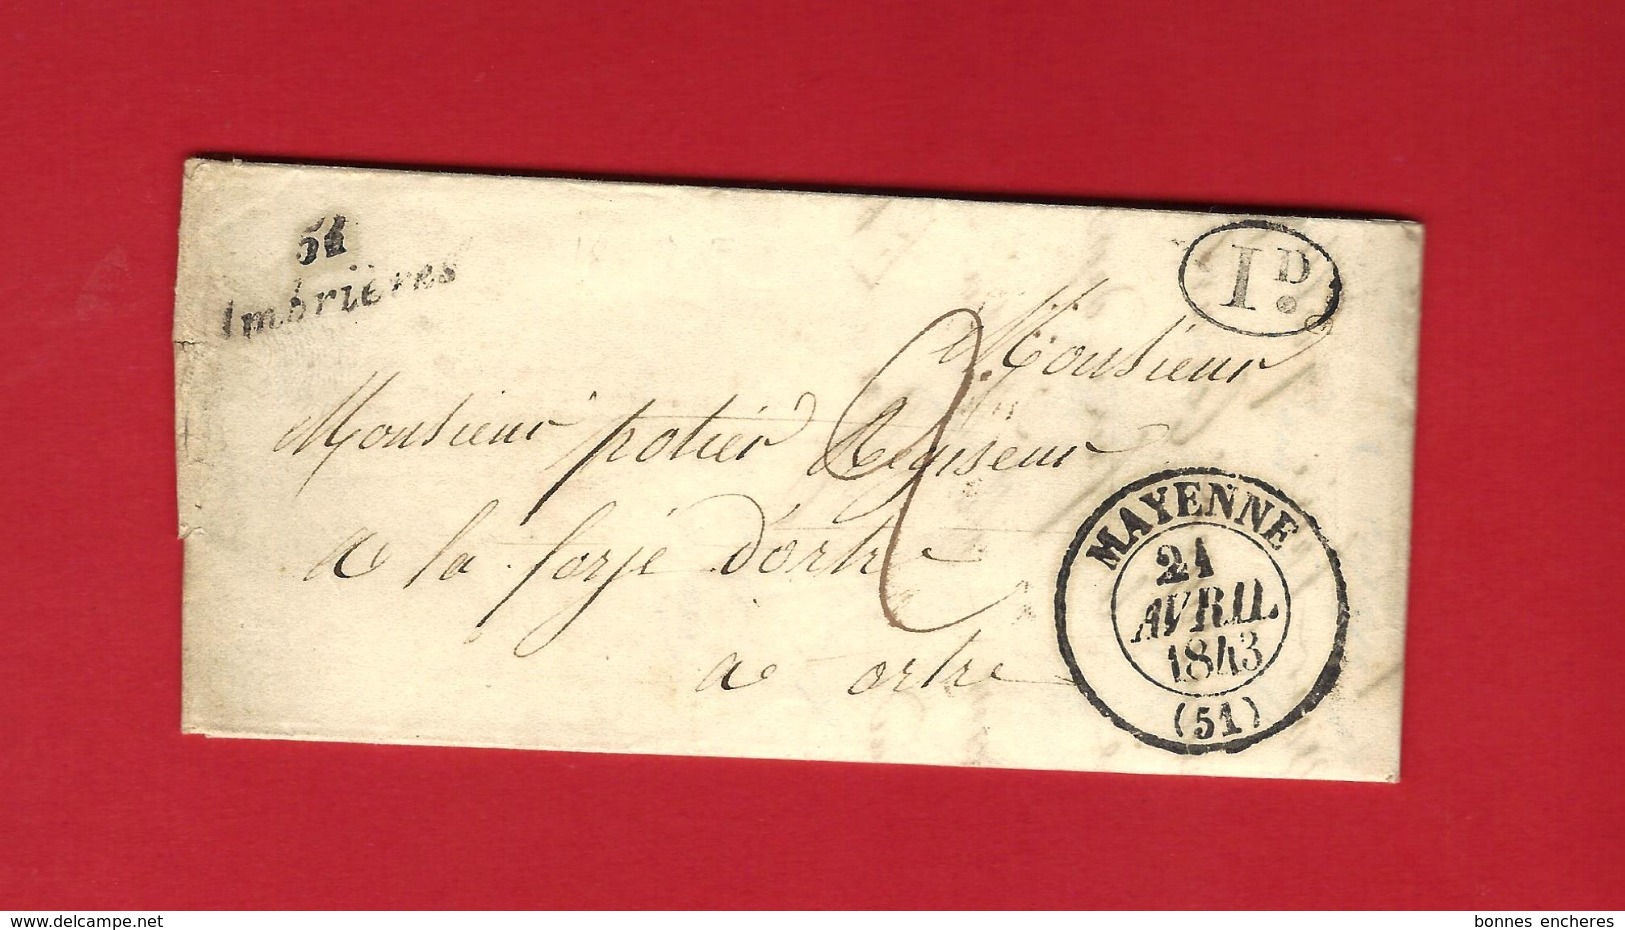 51
Ambrières
1 D
Monsieur
Monsieur potier Régiseur
a la forje d'ortre
a ortre
2
MAYENNE
21
AVRIL
1843
(51)
www.delcampe.net
bonnes encheres